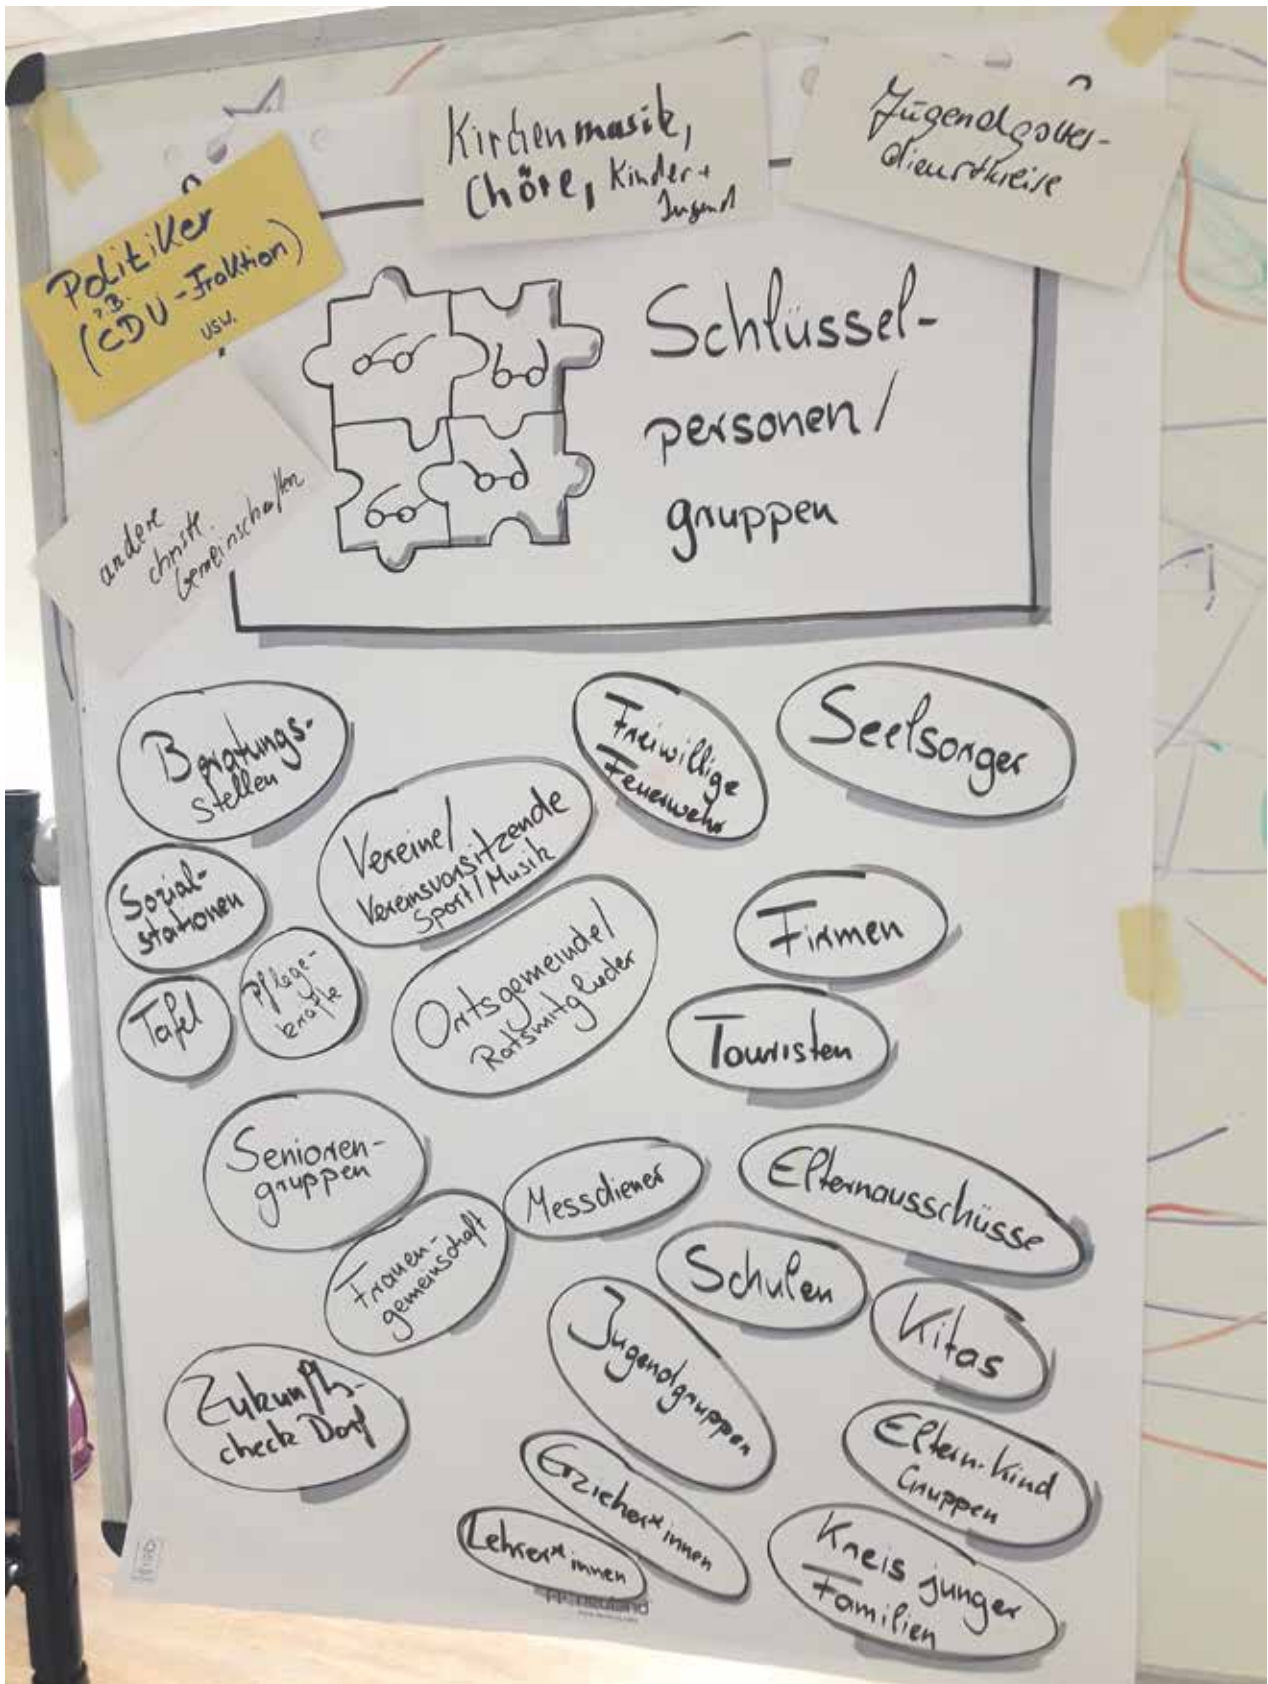 Kirchenmusik,
Chöre, Kinder +
Jugend
Jugendgottes-
dienstkreise
Politiker
z.B.
(CDU-Fraktion)
usw.
andere
christl.
Gemeinschaften
Schlüssel-
personen/
gruppen
Beratungs-
stellen
Freiwillige
Feuerwehr
Seelsorger
Vereine/
Vereinsvorsitzende
Sport/Musik
Sozial-
stationen
Pflege-
kräfte
Tafel
Ortsgemeinde/
Ratsmitglieder
Firmen
Touristen
Senioren-
gruppen
Messdiener
Elternausschüsse
Frauen-
gemeinschaft
Schulen
Kitas
Jugendgruppen
Zukunfts-
check Dorf
Eltern-Kind
Gruppen
Erzieher*innen
Lehrer*innen
Kreis junger
Familien
neuland